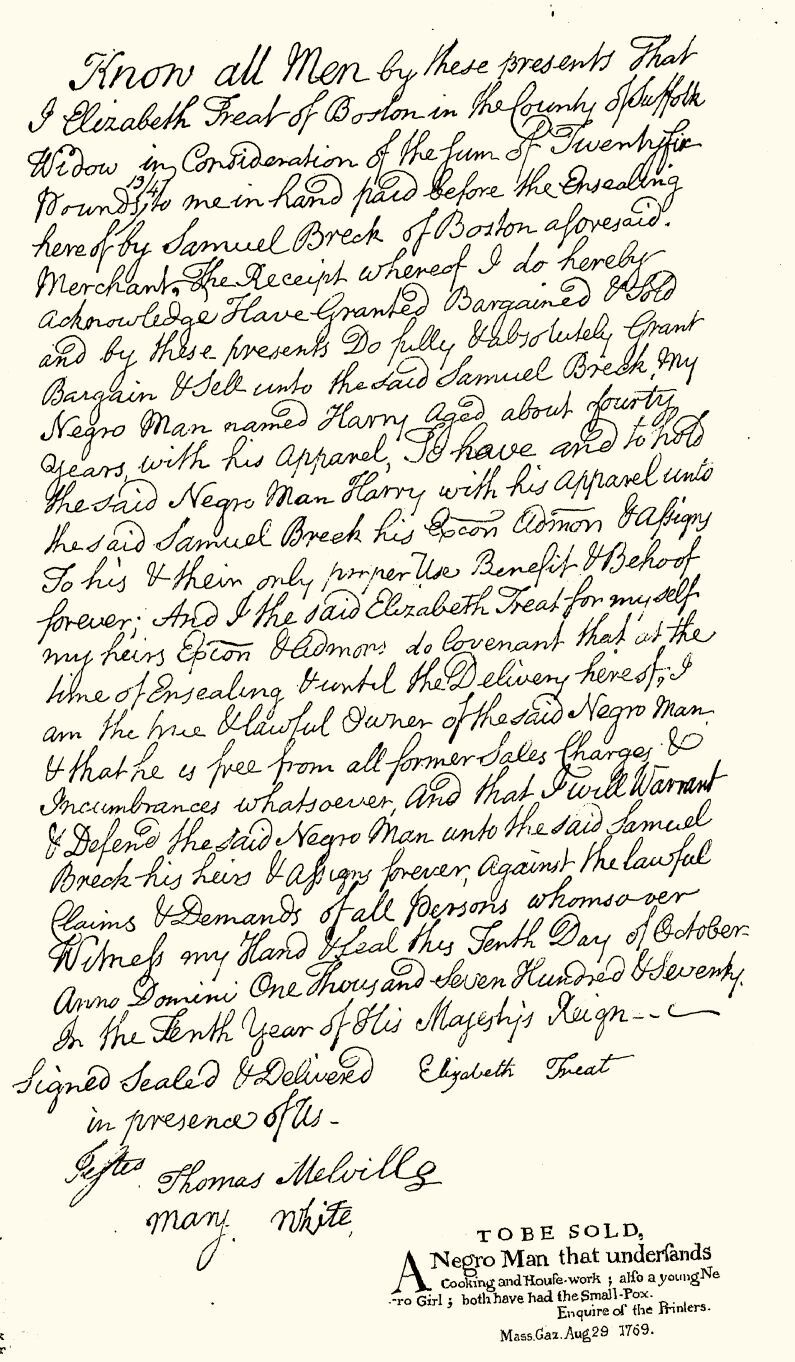 Know all Men by these presents That
I Elizabeth Treat of Boston in the County of Suffolk
Widow in Consideration of the sum of Twentysix
Pounds 13/4 to me in hand paid before the Ensealing
hereof by Samuel Breck of Boston aforesaid.
Merchant, The Receipt whereof I do hereby
Acknowledge Have Granted Bargained & Sold
and by these presents Do fully & absolutely Grant
Bargain & Sell unto the said Samuel Breck, My
Negro Man named Harry aged about fourty
years, with his Apparel, To have and to hold
the said Negro Man Harry with his Apparel unto
the said Samuel Breck his Excon Admon & Assigns
To his & their only proper Use Benefit & Behoof
forever; And I the said Elizabeth Treat for my self
my heirs Excon & Admons do Covenant that at the
time of Ensealing & until the Delivery hereof, I
am the true & lawful Owner of the said Negro Man
& that he is free from all former Sales Charges &
Incumbrances whatsoever, And that I will Warrant
& Defend the said Negro Man unto the said Samuel
Breck his heirs & Assigns forever, against the lawful
Claims & Demands of all Persons whomsoever
Witness my Hand & Seal this Tenth Day of October
Anno Domini One Thousand Seven Hundred & Seventy.
In the Tenth Year of His Majestys Reign--
Signed Sealed & Delivered Elizabeth Treat
in presence of Us -
Testes Thomas Melvill
Mary White
TO BE SOLD,
A Negro Man that undersands
Cooking and House-work ; also a young Ne
-ro Girl ; both have had the Small-Pox.
Enquire of the Printers.
Mass. Gaz. Aug 29 1769.